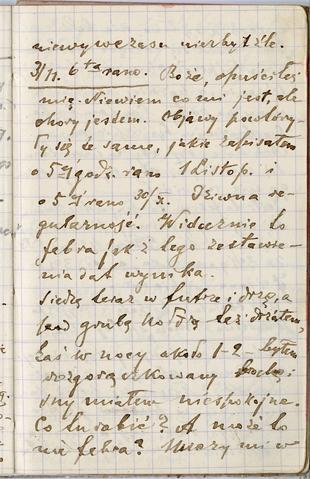 niewywczasu niezbyt źle.
3/11. 6ta rano. Boże, opuściłeś
mię. Niewiem co mi jest, ale
chory jestem. Objawy powtórzy-
ły się te same, jakie zapisałem
o 5 godz. rano 1 Listop. i
o 5 rano 30/X. Dziwna re-
gularność. Widocznie to
febra jak z tego zestawie-
nia dat wynika.
Siedzę teraz w futrze i drżę, a
pod grubą kołdrą też drżałem,
zaś w nocy około 1-2 byłem
rozgorączkowany i
sny miałem niespokojne.
Co tu robić? A może to
nie febra? mi w